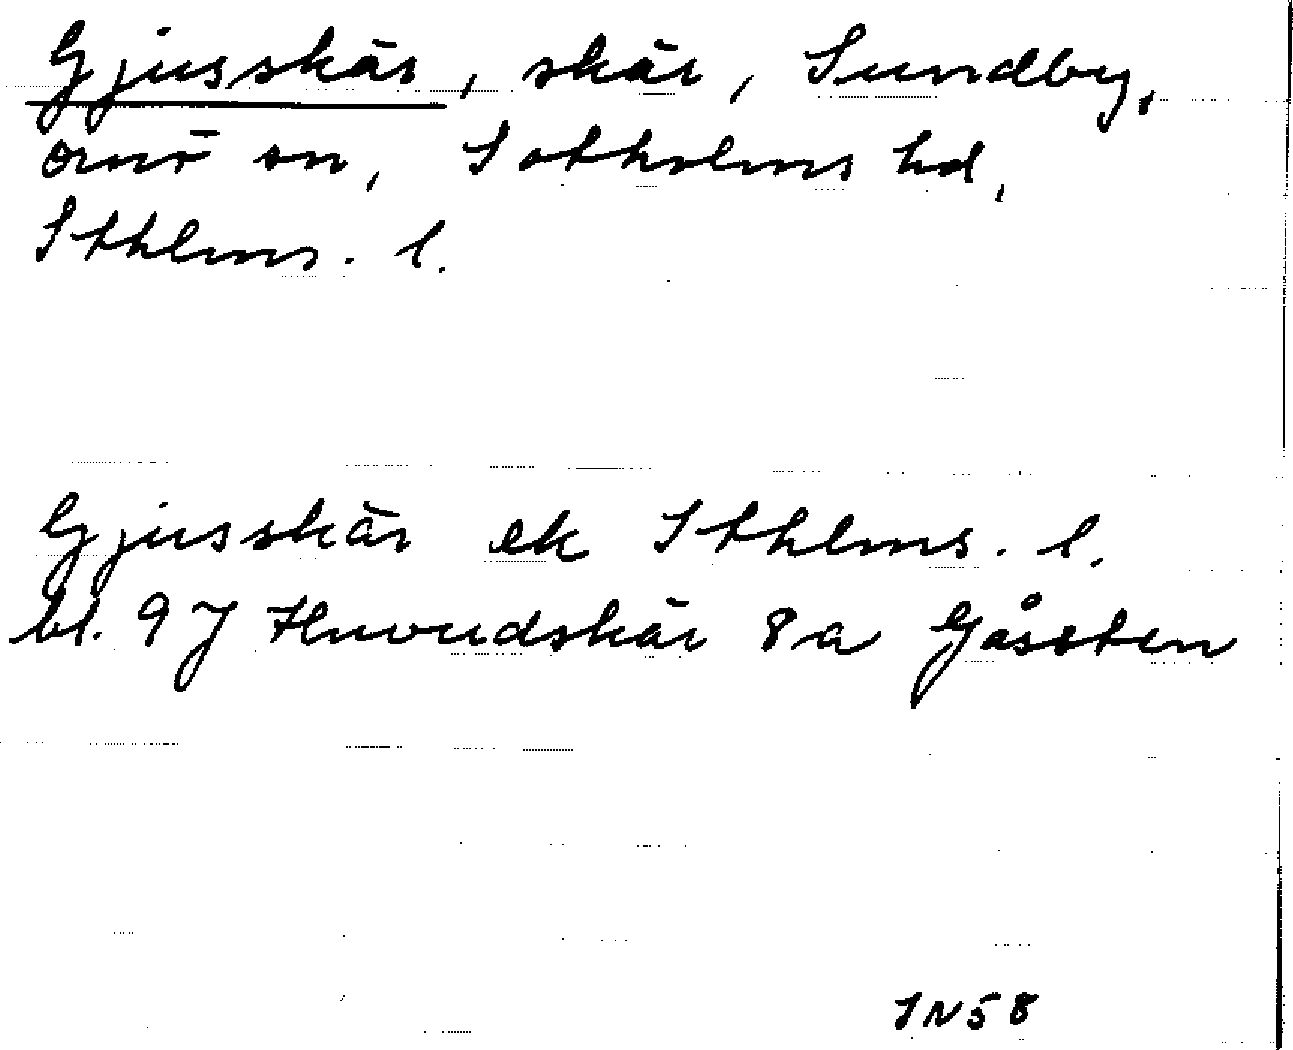 Gjusskär, skär, Sundby,
ornö sn, Sotholms hd,
Sthlms. l.
Gjusskär ek Sthlms. l.
bl. 9J Huvudskär 8a Gåssten
IN58